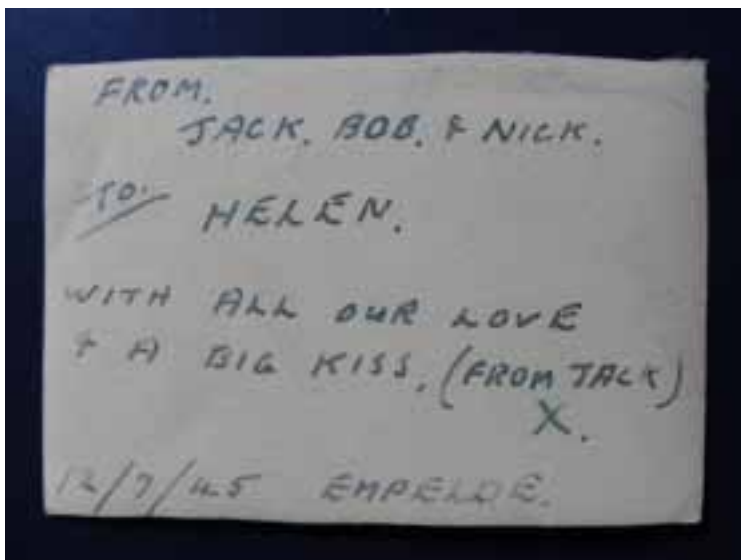 FROM.
JACK. BOB. & NICK.
TO.
HELEN.
WITH ALL OUR LOVE
& A BIG KISS. (FROM JACK)
X.
12/7/45 EMPELDE.